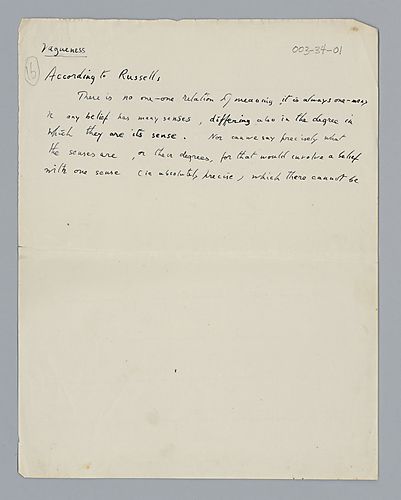 Vagueness
003-34-01
16
According to Russell,
There is no one-one relation of meaning, it is always one-many
ie any belief has many senses, differing also in the degree in
which they are its sense. Nor can we say precisely what
the senses are, or their degrees, for that would involve a belief
with one sense (ie absolutely precise, which there cannot be